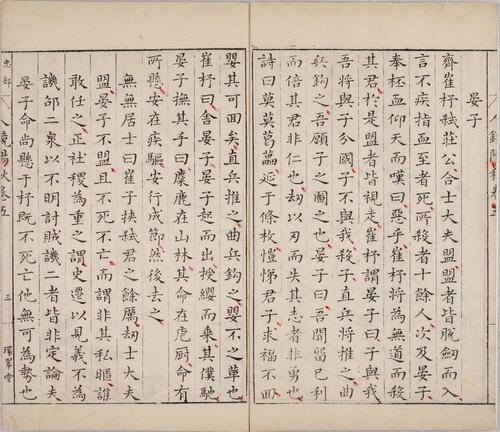 晏子
齊崔杼弑莊公合士大夫盟盟者皆脫劒而入
言不疾指血至者死所殺者十餘人次及晏子
奉杯血仰天而嘆曰惡乎崔杼將為無道而殺
其君於是盟者皆視之崔杼謂晏子曰子與我
吾將與子分國子不與我殺子直兵將推之曲
兵鈎之吾願子之圖之也晏子曰吾聞留以利
而倍其君非仁也刼以刃而失其志者非勇也
詩曰莫莫葛藟延于條枚愷悌君子求福不囬
嬰其可囬矣直兵推之曲兵鈎之嬰不之革也
崔杼曰舍晏子晏子起而出授纓而乗其僕馳
晏子撫其手曰麋鹿在山林其命在庖厨命有
所懸安在疾驅安行成節然後去之
無無居士曰崔子挾弑君之餘厲刼士大夫
盟晏子不盟且不死不亡而謂非其私暱誰
敢任之正社稷為重之謂史遷以見義不為
譏邵二泉以不明討賊譏二者皆非定論夫
晏子命尚懸于杼既不死亡他無可為勢也
忠部
人鏡陽秋卷五
三
環翠堂